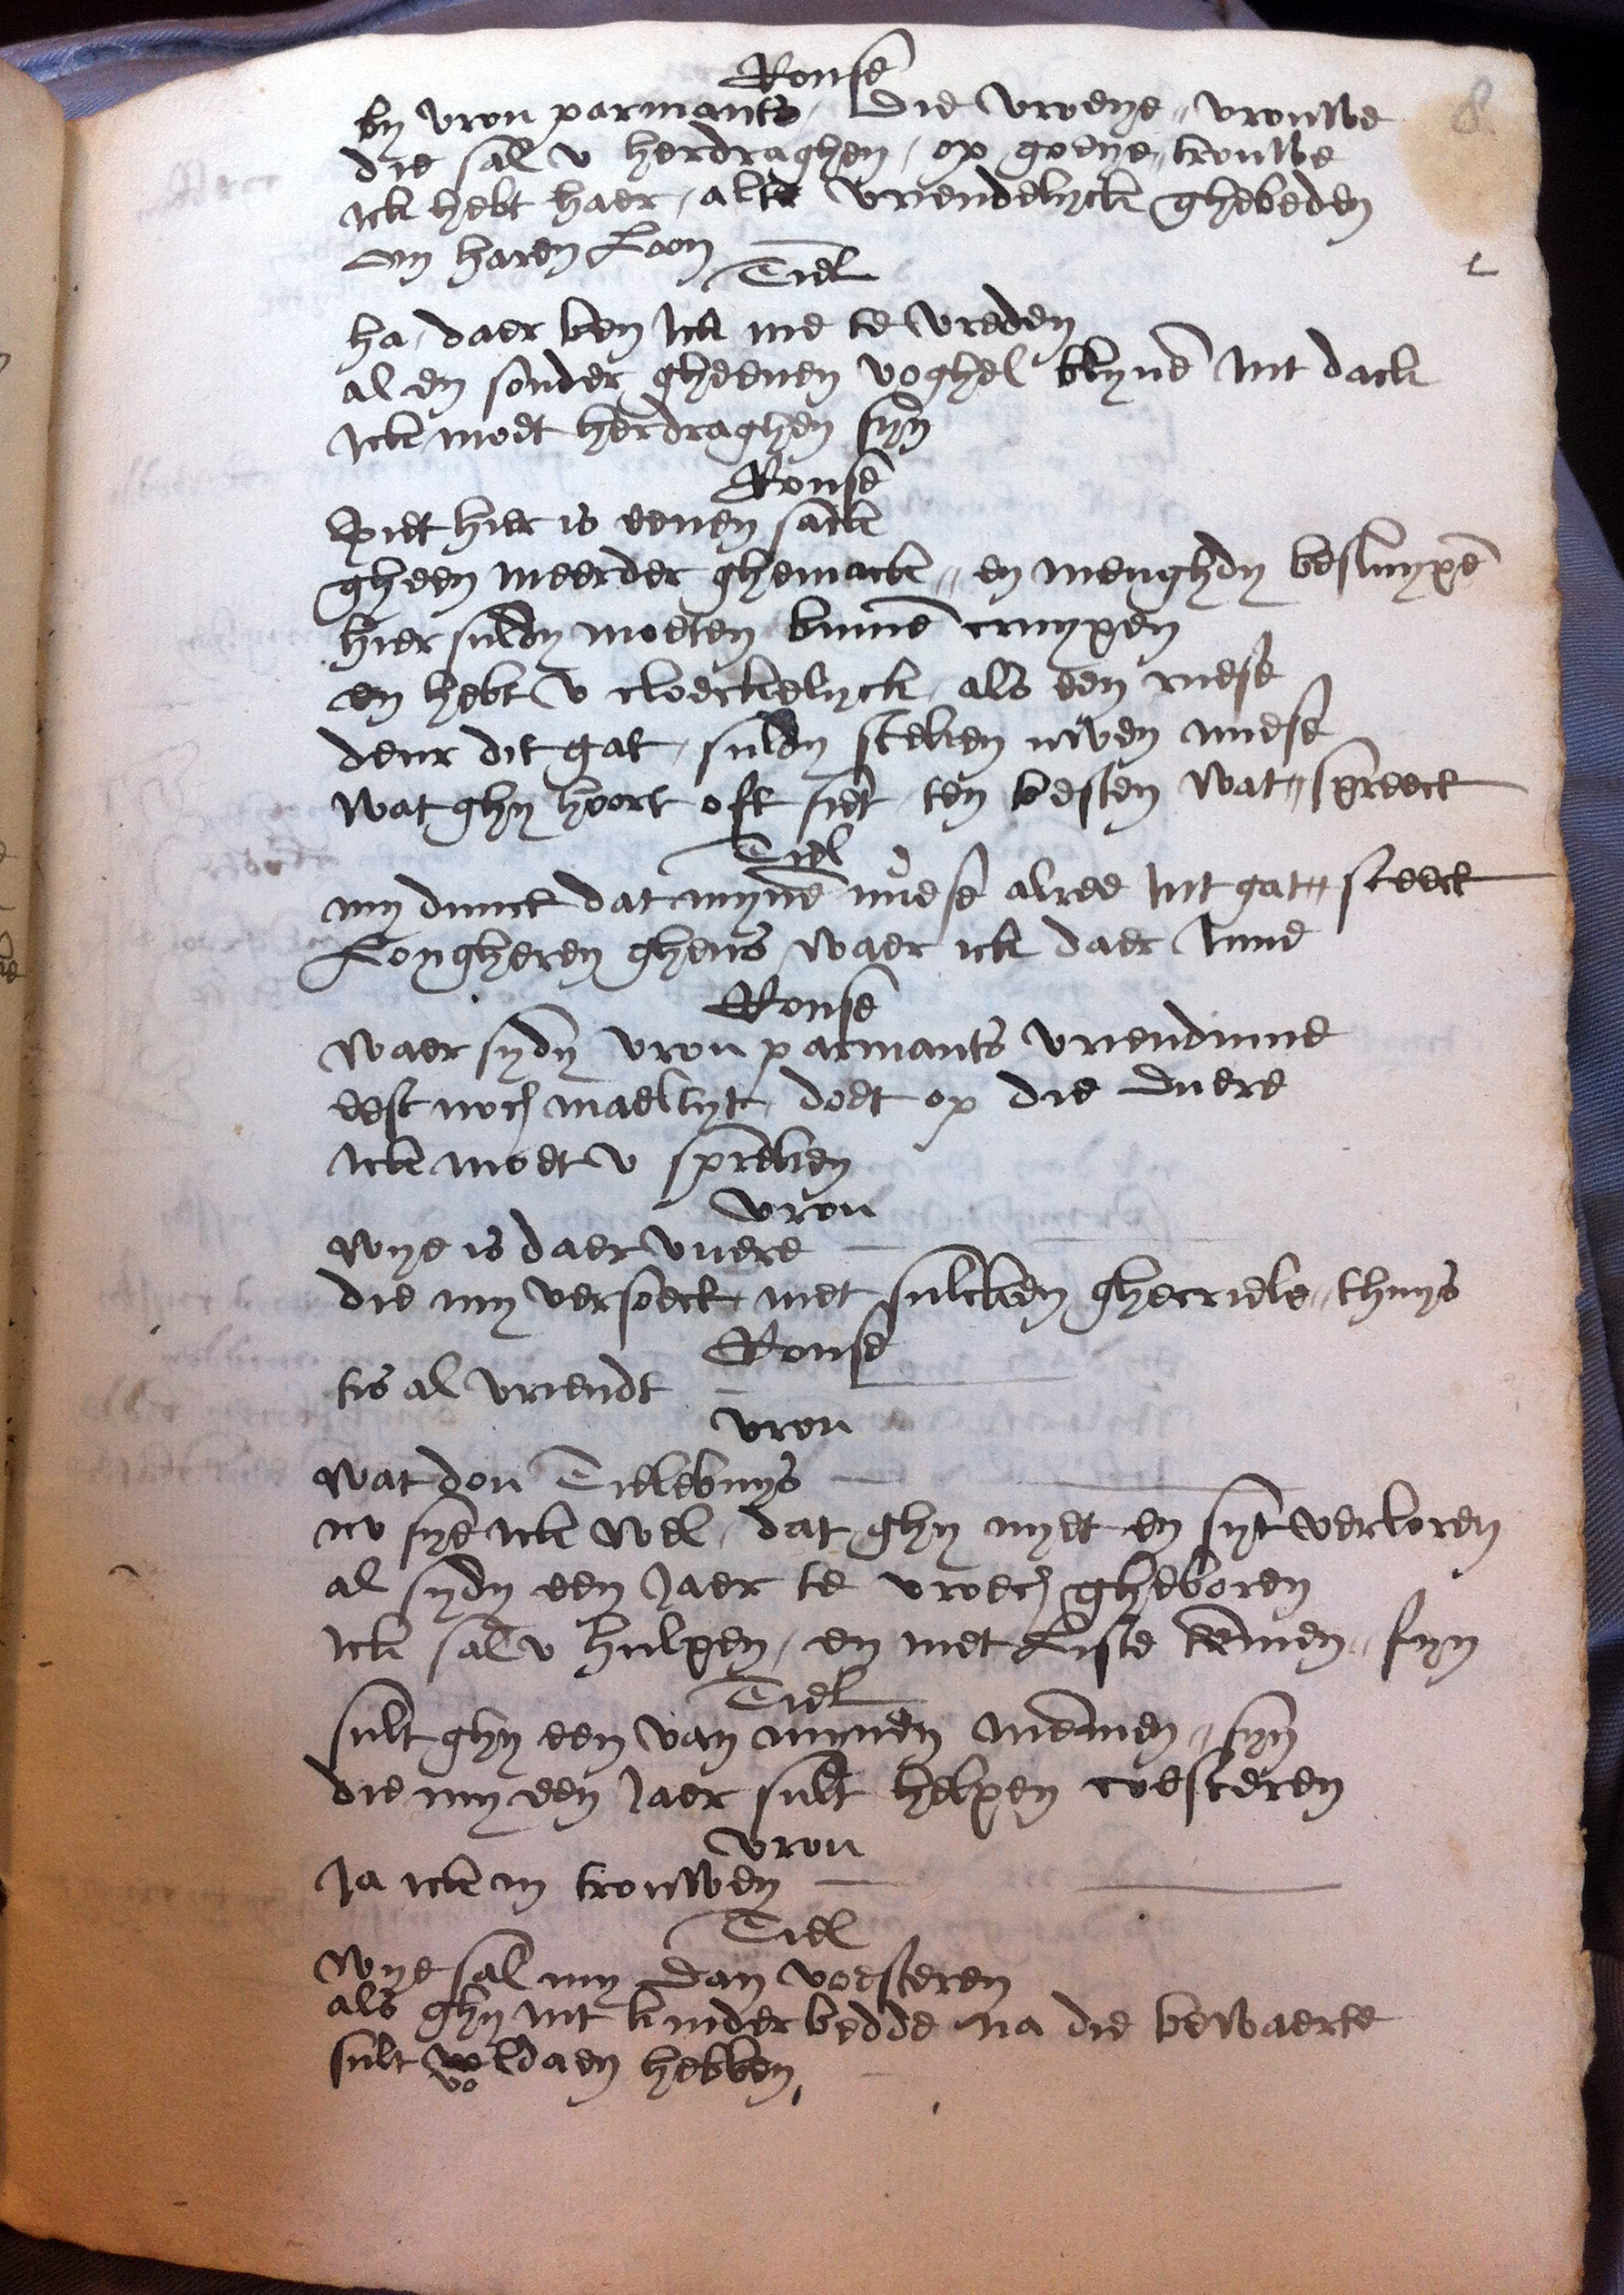 8.
Ronse
by vrou parmants / die vroeye // vrouwe
die sal v herdraghen / op goeye // trouwe
ick hebt haer / alte vriendelyck ghebeden
om haren Loon
Tiel
ha / daer ben ick me te vreden
al en sonder gheenen voghel clyne int dack
ick moet herdraghen syn
Ronse
siet hier is eenen sack
gheen meerder ghemack // en meughdy besluype
hier suldy moeten binne cruypen
en hebt v cloeckelyck / als een riese
deur dit gat / suldy steken uwen niese
wat ghy hoort oft siet / ten besten wat // spreeck
Tiel
my dunct dat myne niese alree int gat // steeck
Longheren ghens waer ick daer inne
Ronse
waer sydy vrou parmants vriendinne
eest noch maeltyt / doet op die duere
ick moet v spreken
vrou
wye is daer vuere
die my versoeckt / met sulcken gherriele // thuys
Ronse
tis al vriendt
vrou
wat dou Tielebuys
nv sye ick wel / dat ghy nyet en syt verloren
al sydy een Jaer te vroech gheboren
ick sal v hulpen / en met Liste temmen // fyn
Tiel
sult ghy een van mynen memmen // syn
die my een Jaer sult helpen coesteren
vrou
Ja ick in trouwen
Tiel
wye sal my dan voesteren
als ghy int kinderbedde na die bewaerte
sult voldaen hebben